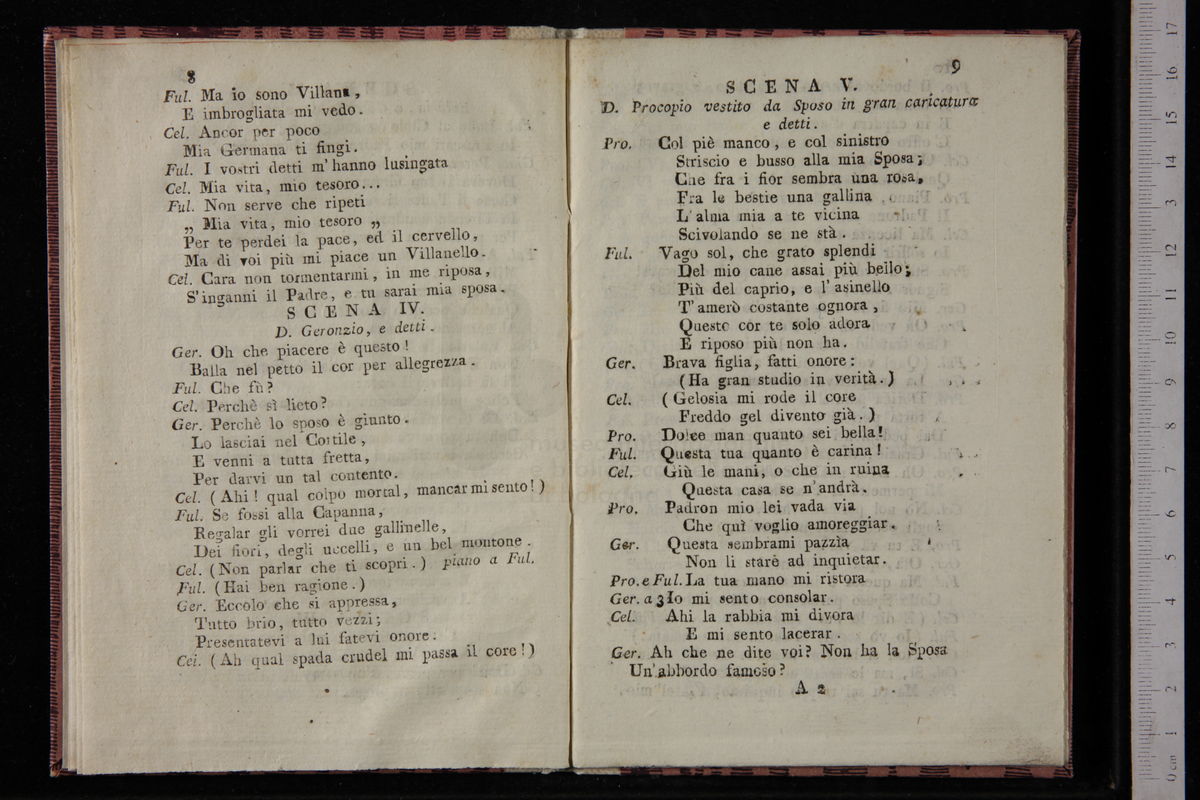 8
Ful. Ma io sono Villana,
E imbrogliata mi vedo.
Cel. Ancor per poco
Mia Germana ti fingi.
Ful. I vostri detti m'hanno lusingata
Cel. Mia vita, mio tesoro...
Ful. Non serve che ripeti
„ Mia vita, mio tesoro „
Per te perdei la pace, ed il cervello,
Ma di voi più mi piace un Villanello.
Cel. Cara non tormentarmi, in me riposa,
S'inganni il Padre, e tu sarai mia sposa.
SCENA IV.
D. Geronzio, e detti.
Ger. Oh che piacere è questo!
Balla nel petto il cor per allegrezza.
Ful. Che fù?
Cel. Perchè sì lieto?
Ger. Perchè lo sposo è giunto.
Lo lasciai nel Cortile,
E venni a tutta fretta,
Per darvi un tal contento.
Cel. (Ahi! qual colpo mortal, mancar mi sento!)
Ful. Se fossi alla Capanna,
Regalar gli vorrei due gallinelle,
Dei fiori, degli uccelli, e un bel montone.
Cel. (Non parlar che ti scopri.) piano a Ful.
Ful. (Hai ben ragione.)
Ger. Eccolo che si appressa,
Tutto brio, tutto vezzi;
Presentatevi a lui fatevi onore.
Cel. (Ah qual spada crudel mi passa il core!)
9
SCENA V.
D. Procopio vestito da Sposo in gran caricatura
e detti.
Pro. Col piè manco, e col sinistro
Striscio e busso alla mia Sposa;
Che fra i fior sembra una rosa,
Fra le bestie una gallina
L'alma mia a te vicina
Scivolando se ne stà.
Ful. Vago sol, che grato splendi
Del mio cane assai più bello;
Più del caprio, e l'asinello
T'amerò costante ognora,
Questo cor te solo adora
E riposo più non ha.
Ger. Brava figlia, fatti onore:
(Ha gran studio in verità.)
Cel. (Gelosia mi rode il core
Freddo gel divento già.)
Pro. Dolce man quanto sei bella!
Ful. Questa tua quanto è carina!
Cel. Giù le mani, o che in ruina
Questa casa se n'andrà.
Pro. Padron mio lei vada via
Che quì voglio amoreggiar.
Ger. Questa sembrami pazzìa
Non li starè ad inquietar.
Pro. e Ful. La tua mano mi ristora
Ger. a 3 Io mi sento consolar.
Cel. Ahi la rabbia mi divora
E mi sento lacerar.
Ger. Ah che ne dite voi? Non ha la Sposa
Un'abbordo famoso?
A 2
0 cm 1 2 3 4 5 6 7 8 9 10 11 12 13 14 15 16 17